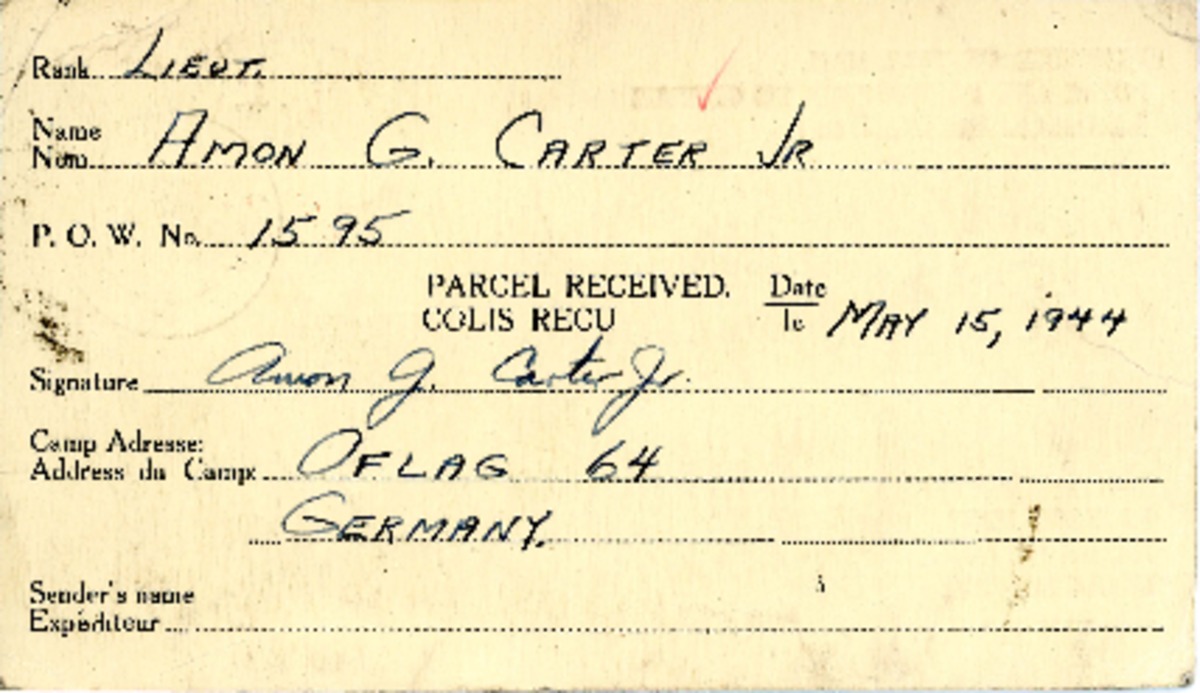 Rank LIEUT.
Name
Nom AMON G. CARTER JR
P. O. W. No. 1595
PARCEL RECEIVED. Date
COLIS RECU le MAY 15, 1944
Signature Amon G. Carter Jr.
Camp Adresse:
Address du Camp: OFLAG 64
GERMANY.
Sender's name
Expéditeur